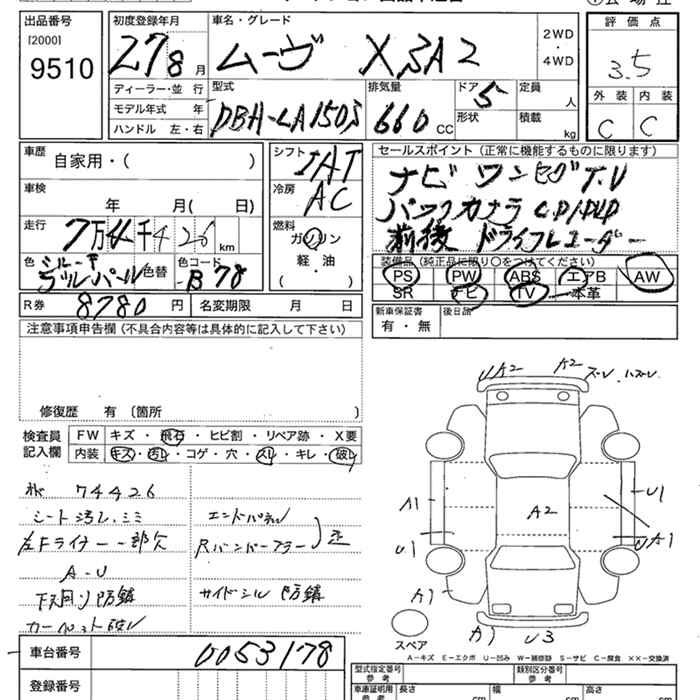 出品番号
[2000]
9510
初度登録年月
27 8 月
ディーラー・並 行
モデル年式 年
ハンドル 左・右
車名・グレード
ムーヴ X SA2
2WD
・
4WD
型式
DBA-LA150S
排気量
660 CC
ドア
5
形状
定員
人
積載
kg
評 価 点
3.5
外 装 内 装
C C
車歴
自家用・( )
車検
年 月( 日)
走行
7万4千426 km
色
色替
色コード
B78
R券
8780 円
名変期限 月 日
シフト
IAT
冷房
AC
燃料
ガソリン
軽・油
( )
セールスポイント(正常に機能するものに限ります)
ナビ ワンセグT.V
バックカメラ CD/DVD
前後 ドライブレコーダー
装備品(純正品に限り○をつけてください)
PS PW ABS エアB AW
SR ナビ TV 本革
新車保証書
有・無
後日品
注意事項申告欄(不具合内容等は具体的に記入して下さい)
修復歴 有〔箇所 〕
検査員
記入欄
FW キズ・飛石・ヒビ割・リペア跡・X要
内装 キズ・汚レ・コゲ・穴・スレ・キレ・破レ
74426
シート汚レ、シミ
左Fライナー一部欠
A-U
下廻り防錆
カーペット破レ
エンドパネル
Rバンパーカラー
サイドシル 防錆
A2
A2 ズレ、ハズレ
A1
U1
A1
A2
U1
UA1
A1 U3
スペア
A-キズ E-エクボ U-凹み W-補修跡 S-サビ C-腐食 ××-交換済
車台番号
0053178
登録番号
型式指定番号
参 考
類別区分番号
参 考
車庫証明用
参 考
長さ cm
幅 cm
高さ cm